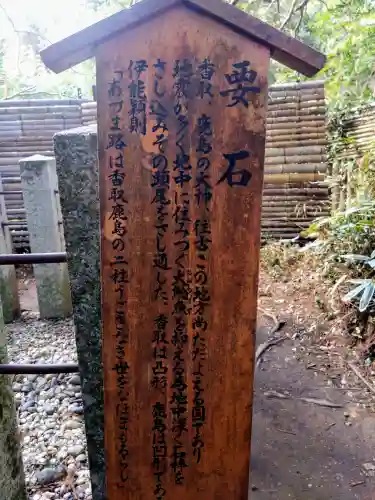 要石
香取、鹿島の大神、往古この地方尚ただよえる国であり
地震が多く地中に住みつく大鯰魚を抑える為地中深く石棒を
さし込みその頭尾をさし通した、香取は凸形、鹿島は凹形である
伊能穎則
「あづま路は香取鹿島の二柱うごきなき世をなほまもるらし